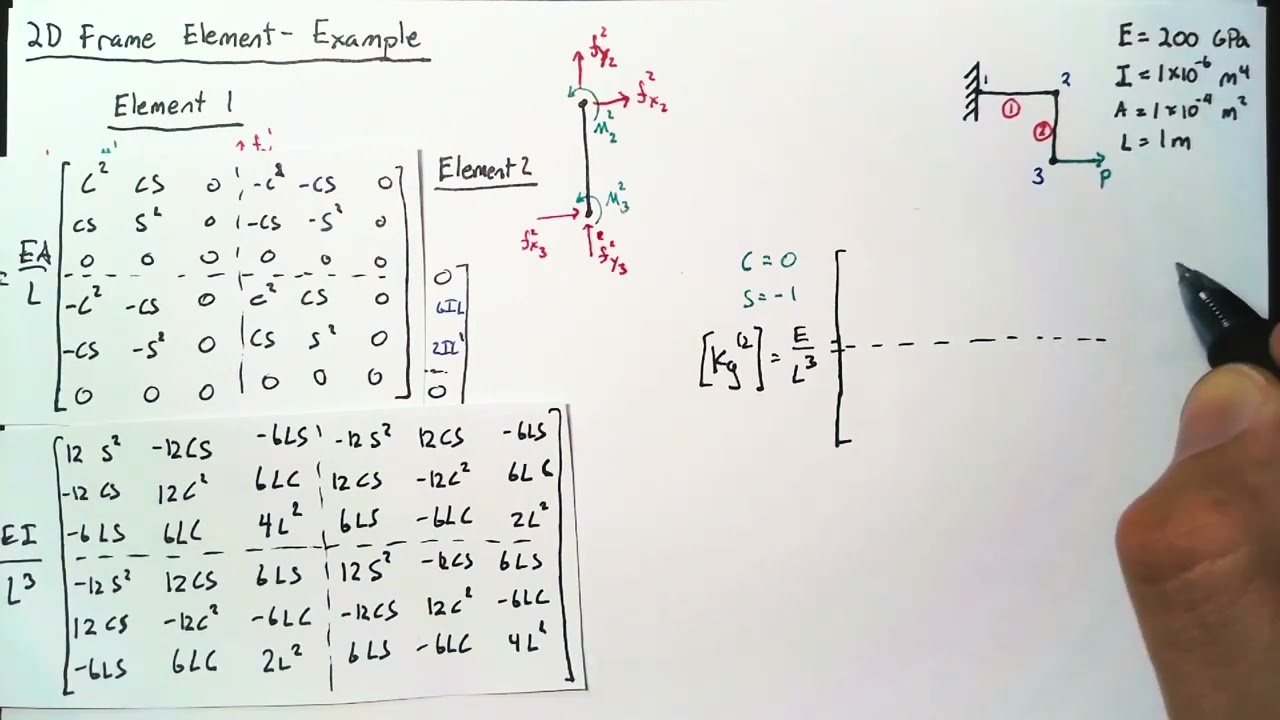 2D Frame Element - Example
Element 1
EA/L
C² CS 0 -C² -CS 0
CS S² 0 -CS -S² 0
0 0 0 0 0 0
-C² -CS 0 C² CS 0
-CS -S² 0 CS S² 0
0 0 0 0 0 0
EI/L³
12 S² -12CS -6LS -12S² 12CS -6LS
-12 CS 12C² 6LC 12CS -12C² 6LC
-6LS 6LC 4L² 6LS -6LC 2L²
-12S² 12CS 6LS 12S² -12CS 6LS
12CS -12C² -6LC -12CS 12C² -6LC
-6LS 6LC 2L² 6LS -6LC 4L²
Element 2
0
6IL
2IL²
0
f²y2
f²x2
M²2
M²3
f²x3
f²y3
C = 0
S = -1
[Kg⁽²⁾] = E/L³
1
2
①
②
3
P
E = 200 GPa
I = 1×10⁻⁶ m⁴
A = 1×10⁻⁴ m²
L = 1m